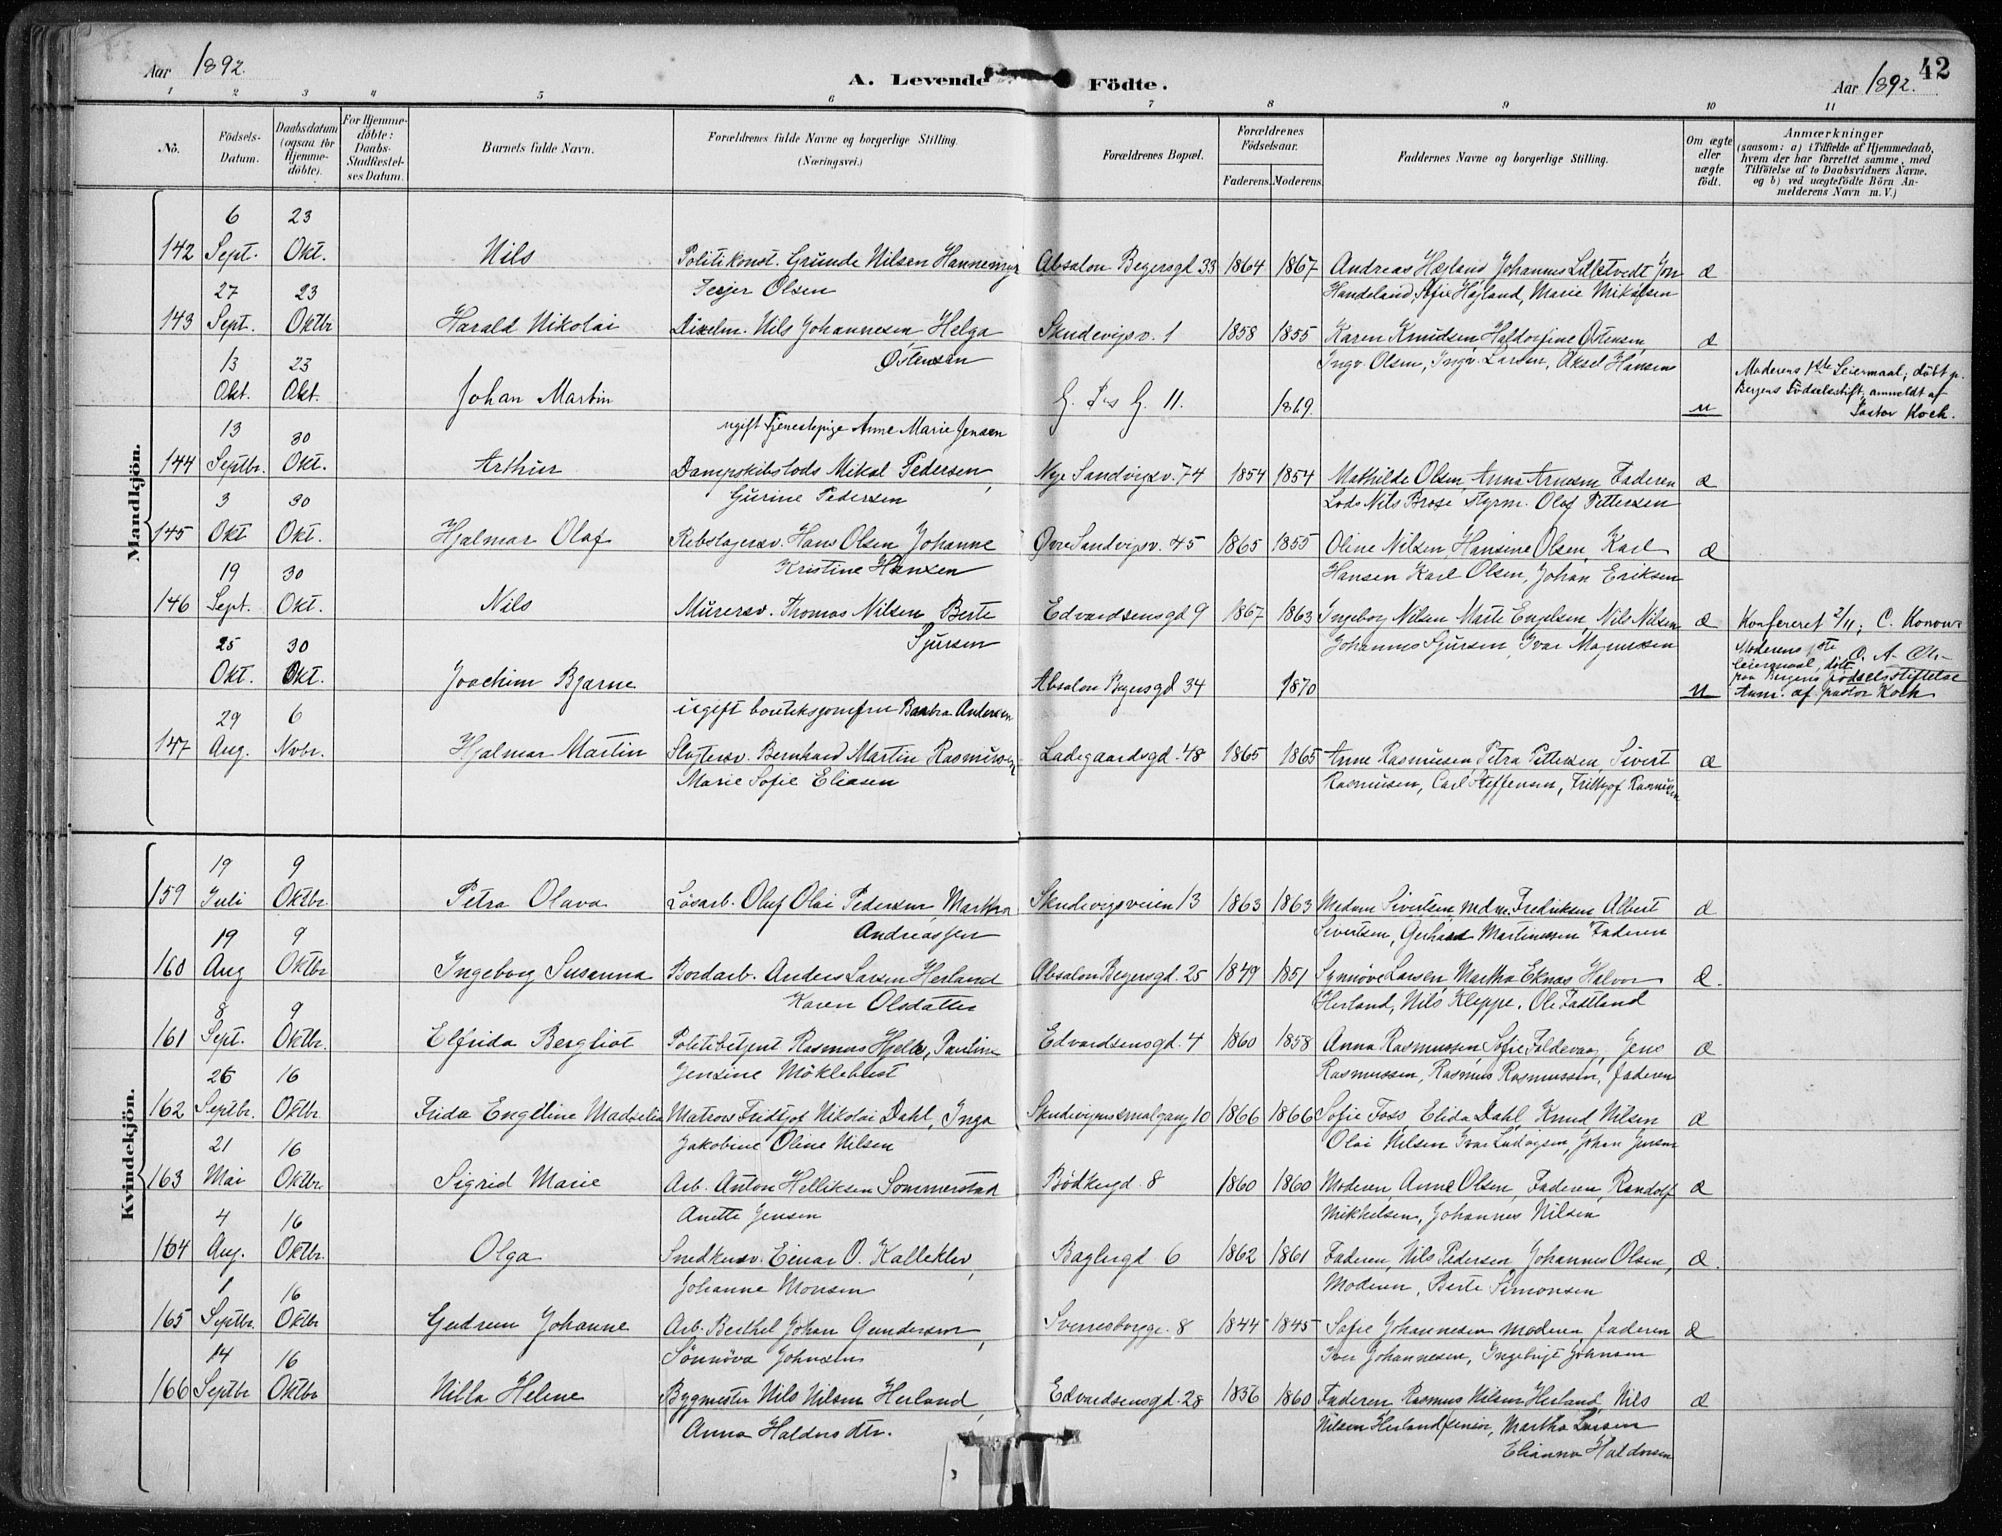 Aar 1892.
A. Levende Födte.
Aar 1892.
42
1 2 3 4 5 6 7 8 9 10 11
No.
Födsels-Datum.
Daabsdatum (ogsaa for Hjemmedöbte).
For Hjemmedöbte: Daabs-Stadfæstelses Datum.
Barnets fulde Navn.
Forældrenes fulde Navne og borgerlige Stilling. (Næringsvei.)
Forældrenes Bopæl.
Forældrenes Födselsaar.
Faderens. Moderens.
Faddernes Navne og borgerlige Stilling.
Om ægte eller uægte födt.
Anmærkninger (saasom: a) i Tilfælde af Hjemmedaab, hvem der har forrettet samme, med Tilföielse af to Daabsvidners Navne, og b) ved uægtefödte Börn Anmelderens Navn m. V.)
Mandkjön.
6 23
142 Sept. Okt. Nils Politikonst. Grunde Nilsen Hannemyr Absalon Beyersgd 33 1864 1867 Andreas Højland Johannes Lilletvedt Jon æ
Handeland, Sofie Højland, Marie Mikalsen
27 23
143 Sept. Oktbr Harald Nikolai Nils Johannesen, Helga Skudevigsv. 1 1858 1855 Karen Knudsen Haldorfine Østensen æ
Østensen Ingv. Olsen, Ingv. Larsen, Aksel Hansen
13 23
Okt. Okt. Johan Martin 11. 1869 u Moderens 1ste Leiermaal; döbt p. Bergens Födselsstift. anmeldt af Pastor Koch.
ugift Tjenestepige Anne Marie Jensen
13 30
144 Septbr. Okt. Arthur Dampskibslods Mikal Pedersen, Nye Sandvigsv. 74 1854 1854 Mathilde Olsen, Anna Arnesen Faderen æ
Gurine Pedersen Lods Nils Brose Styrm. Olaf Pettersen
3 30
145 Okt Okt. Hjalmar Olaf Rebslagersv. Hans Olsen Johanne Øvre Sandvigsv. 45 1865 1855 Oline Nilsen, Hansine Olsen, Karl æ
Kristine Hansen Hansen Karl Olsen, Johan Eriksen
19 30
146 Sept. Okt. Nils Murersv. Thomas Nilsen Berte Edvardsensgd 9 1867 1863 Ingeborg Nilsen Marte Engelsen, Nils Nilsen æ Konfereret 2/11; C. Konow
Sjursen Johannes Sjursen, Ivar Magnussen
25 30
Okt. Okt. Joachim Bjarne Absalon Beyersgd 34 1870 u Moderens 1ste Leiermaal, döbt paa Bergens Födselsstiftelse Anm. af pastor Koch
ugift boutiksjomfru Barbra Andersen
29 6
147 Aug. Nvbr. Hjalmar Martin Slagtersv. Bernhard Martin Rasmussen Ladegaardsgd. 48 1865 1865 Anne Rasmussen, Petra Pettersen, Sivert æ
Marie Sofie Eliasen Rasmussen, Carl Steffensen, Frithjof Rasmussen
Kvindekjön.
19 9
159 Juli Oktbr Petra Olava Løsarb. Oluf Olai Pedersen, Martha Skudevigsveien 13 1863 1863 Madam Sivertsen, mdm. Fredriksen Albert æ
Andreassen Sivertsen, Gerhard Martinussen Faderen
19 9
160 Aug Oktbr Ingeborg Susanna Bordarb. Anders Larsen Herland Absalon Beyersgd. 25 1849 1851 Synnøve Larsen, Martha Eknæs Halvor æ.
Karen Olsdatter Herland, Nils Kleppe. Ole Fattland
8 9
161 Sept. Oktbr. Elfrida Bergliot Politibetjent Rasmus Hjelle, Pauline Edvardsensgd. 4 1860 1858 Anna Rasmussen Sofie Foldevaag, Jens æ
Jensine Møklebust Rasmussen, Rasmus Rasmussen, faderen
26 16
162 Septbr. Oktbr. Frida Engeline Matros Fridtjof Nikolai Dahl, Inga Skudevigssmalgang 10 1866 1866 Sofie Foss, Elida Dahl, Knud Nilsen æ
Jakobine Oline Nilsen Olai Nilsen Ivar Ludvigsen, Johan Jensen
21 16
163 Mai Oktbr. Sigrid Marie Arb. Anton Helliksen Sommerstad Bødkergd. 8 1860 1860 Moderen, Anne Olsen, Faderen, Randolf æ
Anette Jensen Mikkelsen, Johannes Nilsen
4 16
164 Aug. Oktbr. Olga Snedkersv. Einar O. Kalleklev, Baglergd. 6 1862 1861 Faderen, Nils Pedersen Johannes Olsen, æ.
Johanne Monsen Moderen, Berte Simonsen
1 16
165 Septbr. Oktbr Gudrun Johanne Arb. Berthel Johan Gundersen, Sverresborgg. 8 1844 1845 Sofie Johannesen moderen, faderen æ
Sønnøva Johnsen Iver Johannesen, Ingebrigt Johnsen
14 16
166 Septbr Oktbr Nilla Helene Bygmester Nils Nilsen Herland, Edvardsensgd. 28 1836 1860 Faderen, Rasmus Nilsen Herland, Nils æ
Anna Haldorsdtr. Nilsen Herland senior, Martha Larsen
Elianna Haldorsen